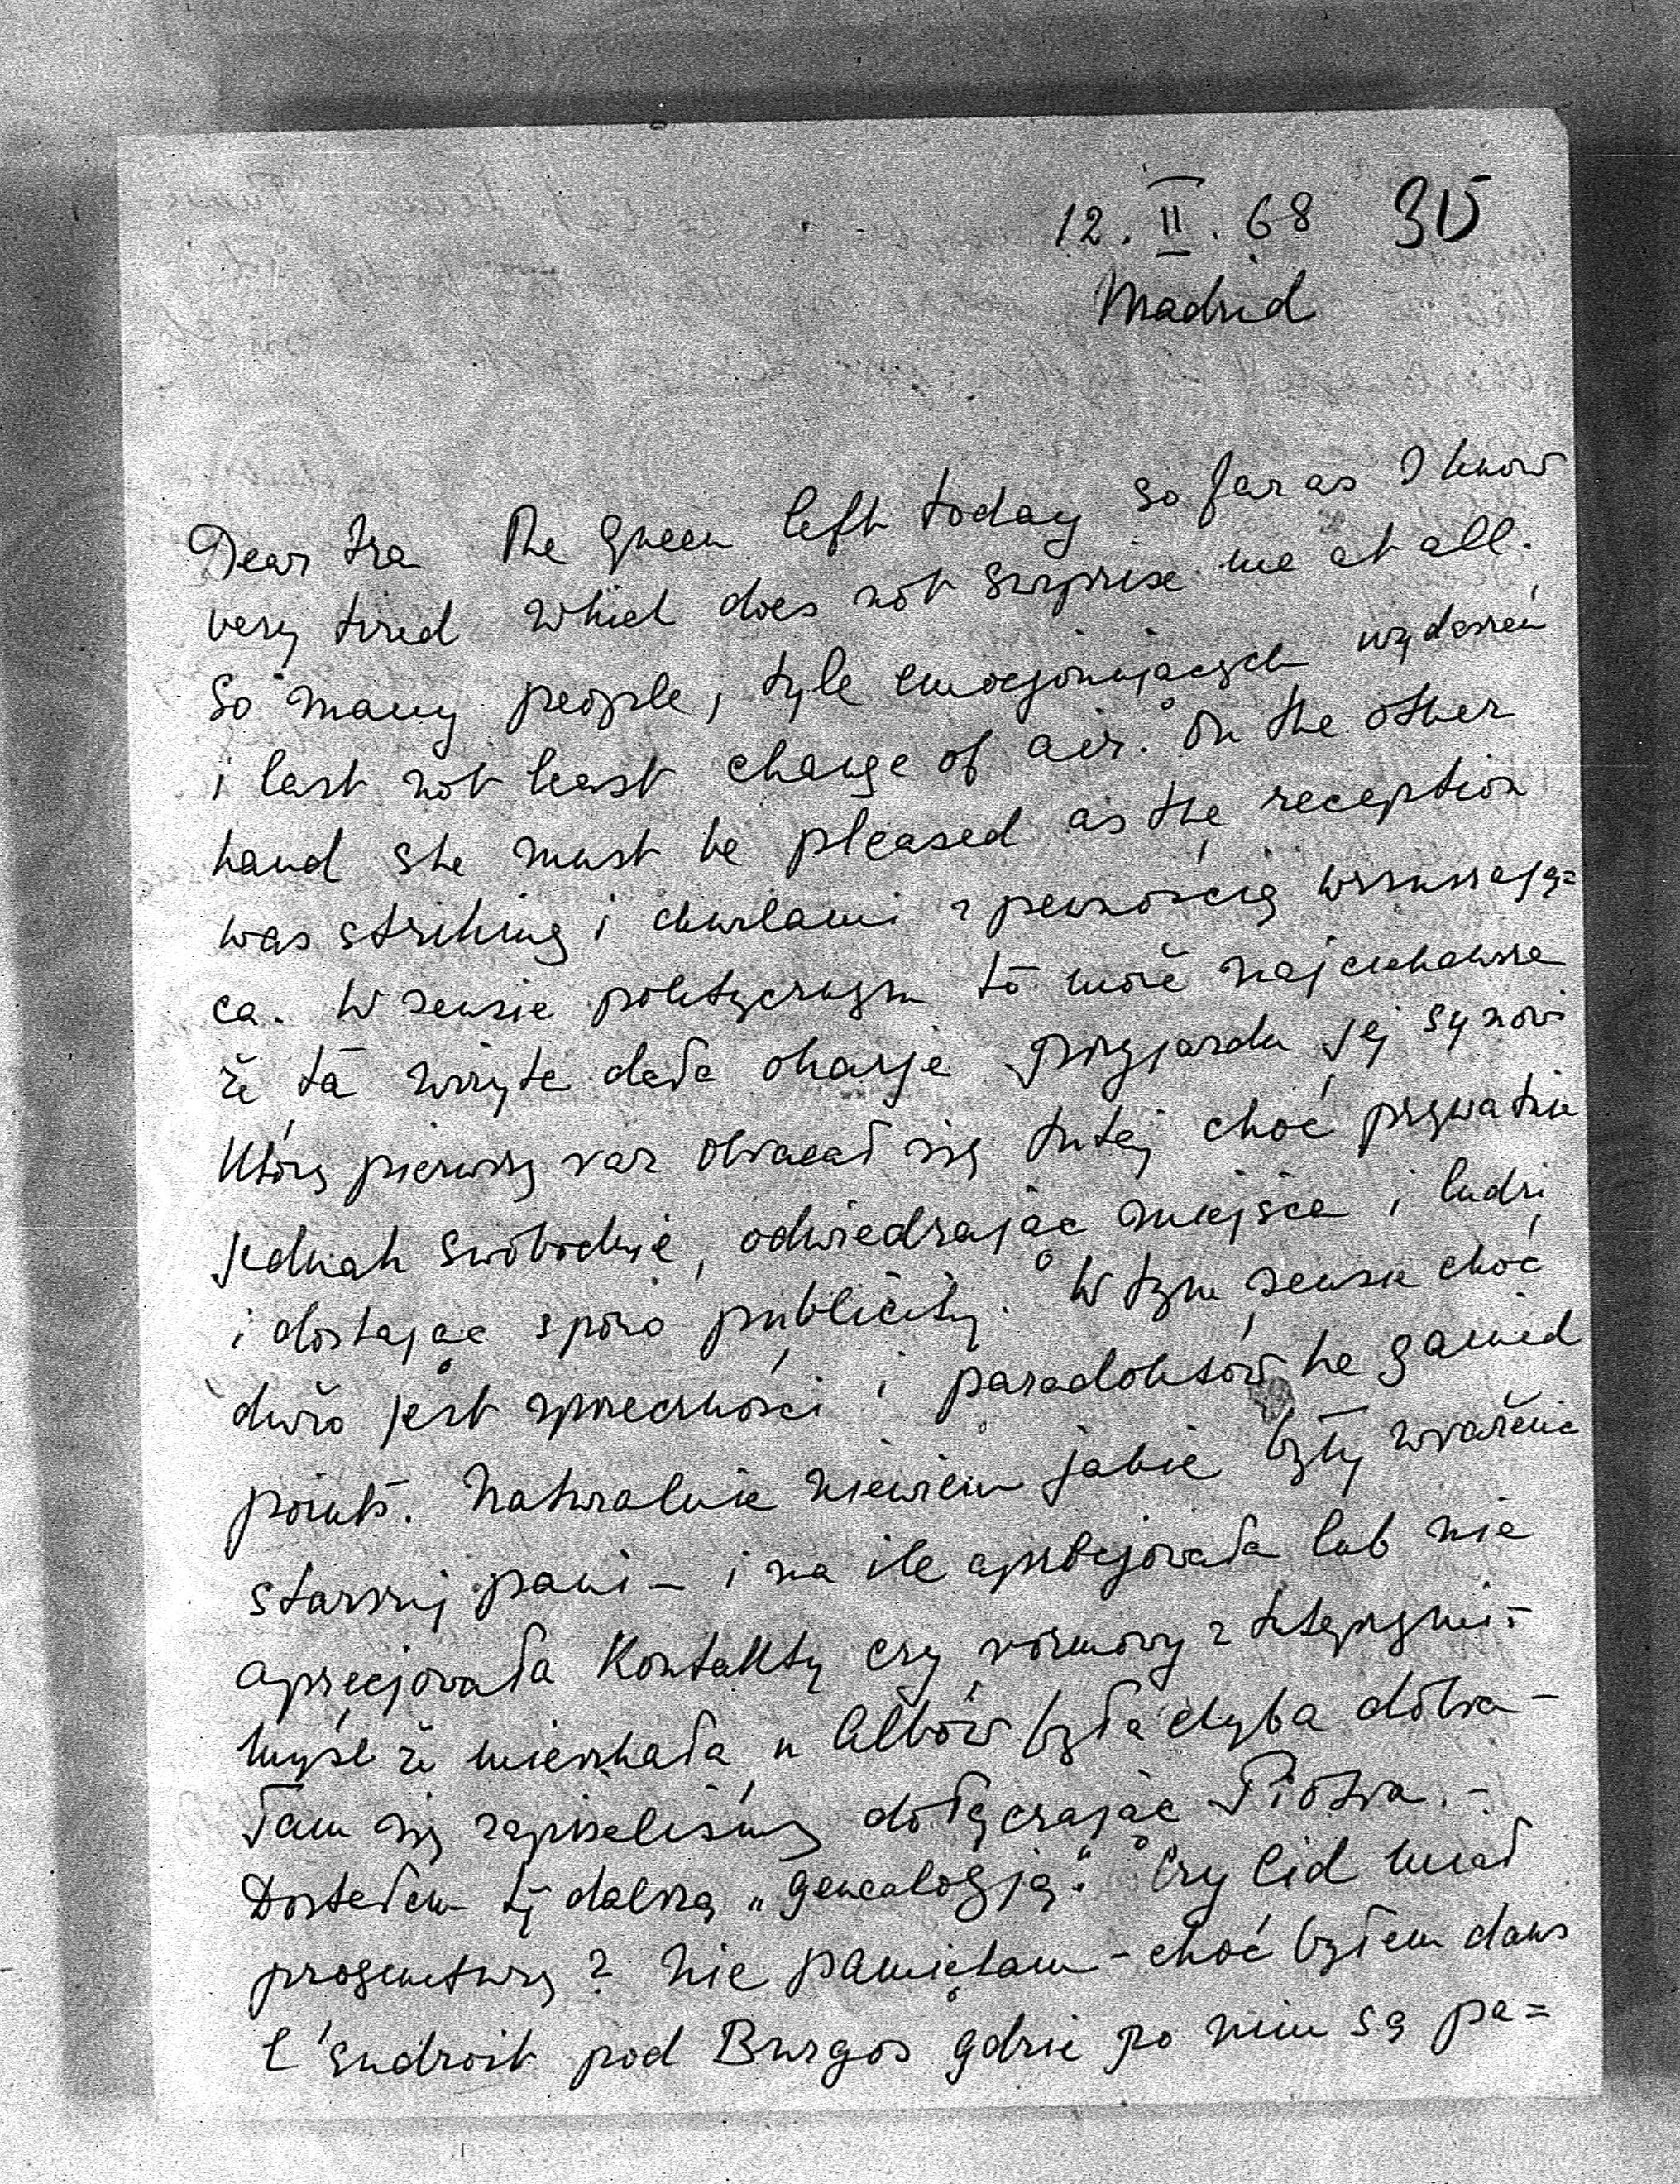 12. II. 68 30
Madrid
Dear Ira The Queen left today so far as I know
very tired which does not surprise me at all.
So many people, tyle emocjonujących wydarzeń
i last not least change of air. On the other
hand she must be pleased as the reception
was striking i chwilami z pewnością wzruszają=
ca. W sensie politycznym to może najciekawsze
że ta wizyta dała okazje przyjazdu jej synowi
który pierwszy raz obracał się tutej choć prywatnie
jednak swobodnie, odwiedzając miejsca i ludzi
i dostając sporo publicity. W tym sensie choć
dużo jest sprzeczności i paradoksów he gained
points. Naturalnie niewiem jakie były wrażenia
starszej pani – i na ile aprecjowała lub nie
aprecjowała kontakty czy rozmowy z tutejszymi –
myśl że mieszkała u Albów była chyba dobra –
Tam się zapisaliśmy dołączając Piotra. –
Dostałem tę dalszą „genealogją". Czy Cid miał
progeniturę? Nie pamiętam – choć byłem dans
l'endroit pod Burgos gdzie po nim są pa=